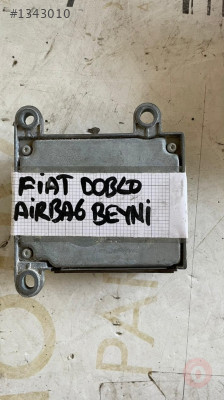 #1343010
FiAT DOBLO
AiRBAG BEYNi